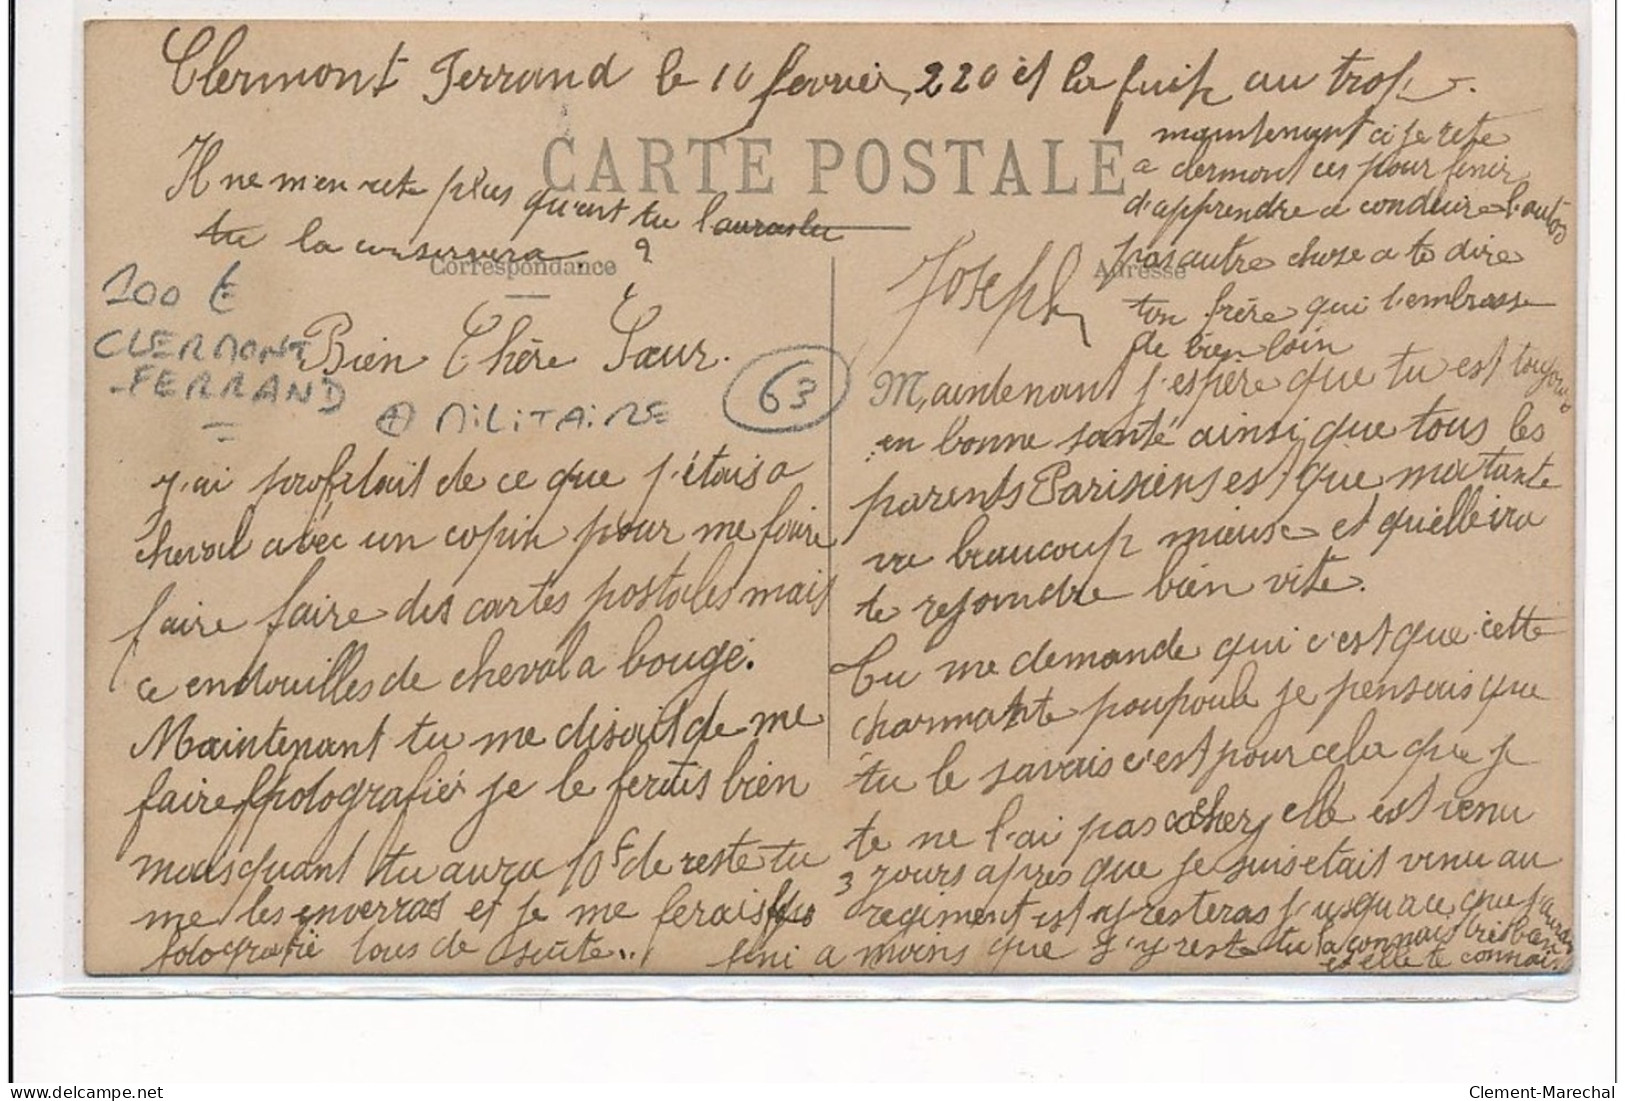 Clermont Ferrand le 10 fevrier, 220 et la fuit au trot.
CARTE POSTALE
Il ne m'en reste plus qu'est tu l'aurastu
tu la conservera ?
Correspondance
100 €
CLERMONT
-FERRAND
+ MILITAIRE
63
Bien Chère Sœur.
J'ai profitait de ce que j'étais a
cheval avéc un copin pour me faire
faire faire des cartes postales mais
ce endouilles de cheval a bougé.
Maintenant tu me disait de me
faire photografier je le ferais bien
mais quant tu aura 10f de reste tu
me les enverras et je me ferais
fotografié tous de suite..
maintenant ci je reste
a clermont ces pour finir
d'apprendre a conduire l'auto
pas autre chose a te dire
ton frère qui t'embrasse
de bien loin
Joseph
Adresse
Maintenant j'espère que tu est toujours
en bonne santé ainsi que tous les
parents Parisiens est que ma tante
va beaucoup mieux et qu'elle ira
te rejoindre bien vite.
Tu me demande qui c'est que cette
charmante poupoule je pensais que
tu le savais c'est pour cela que je
te ne l'ai pas cacher, elle est venu
3 jours après que je suis etait venu au
regiment est y resteras jusqu'a ce que j'aurai
fini a moins que j'y reste tu la connais très bien
et elle te connais
Clement-Marechal